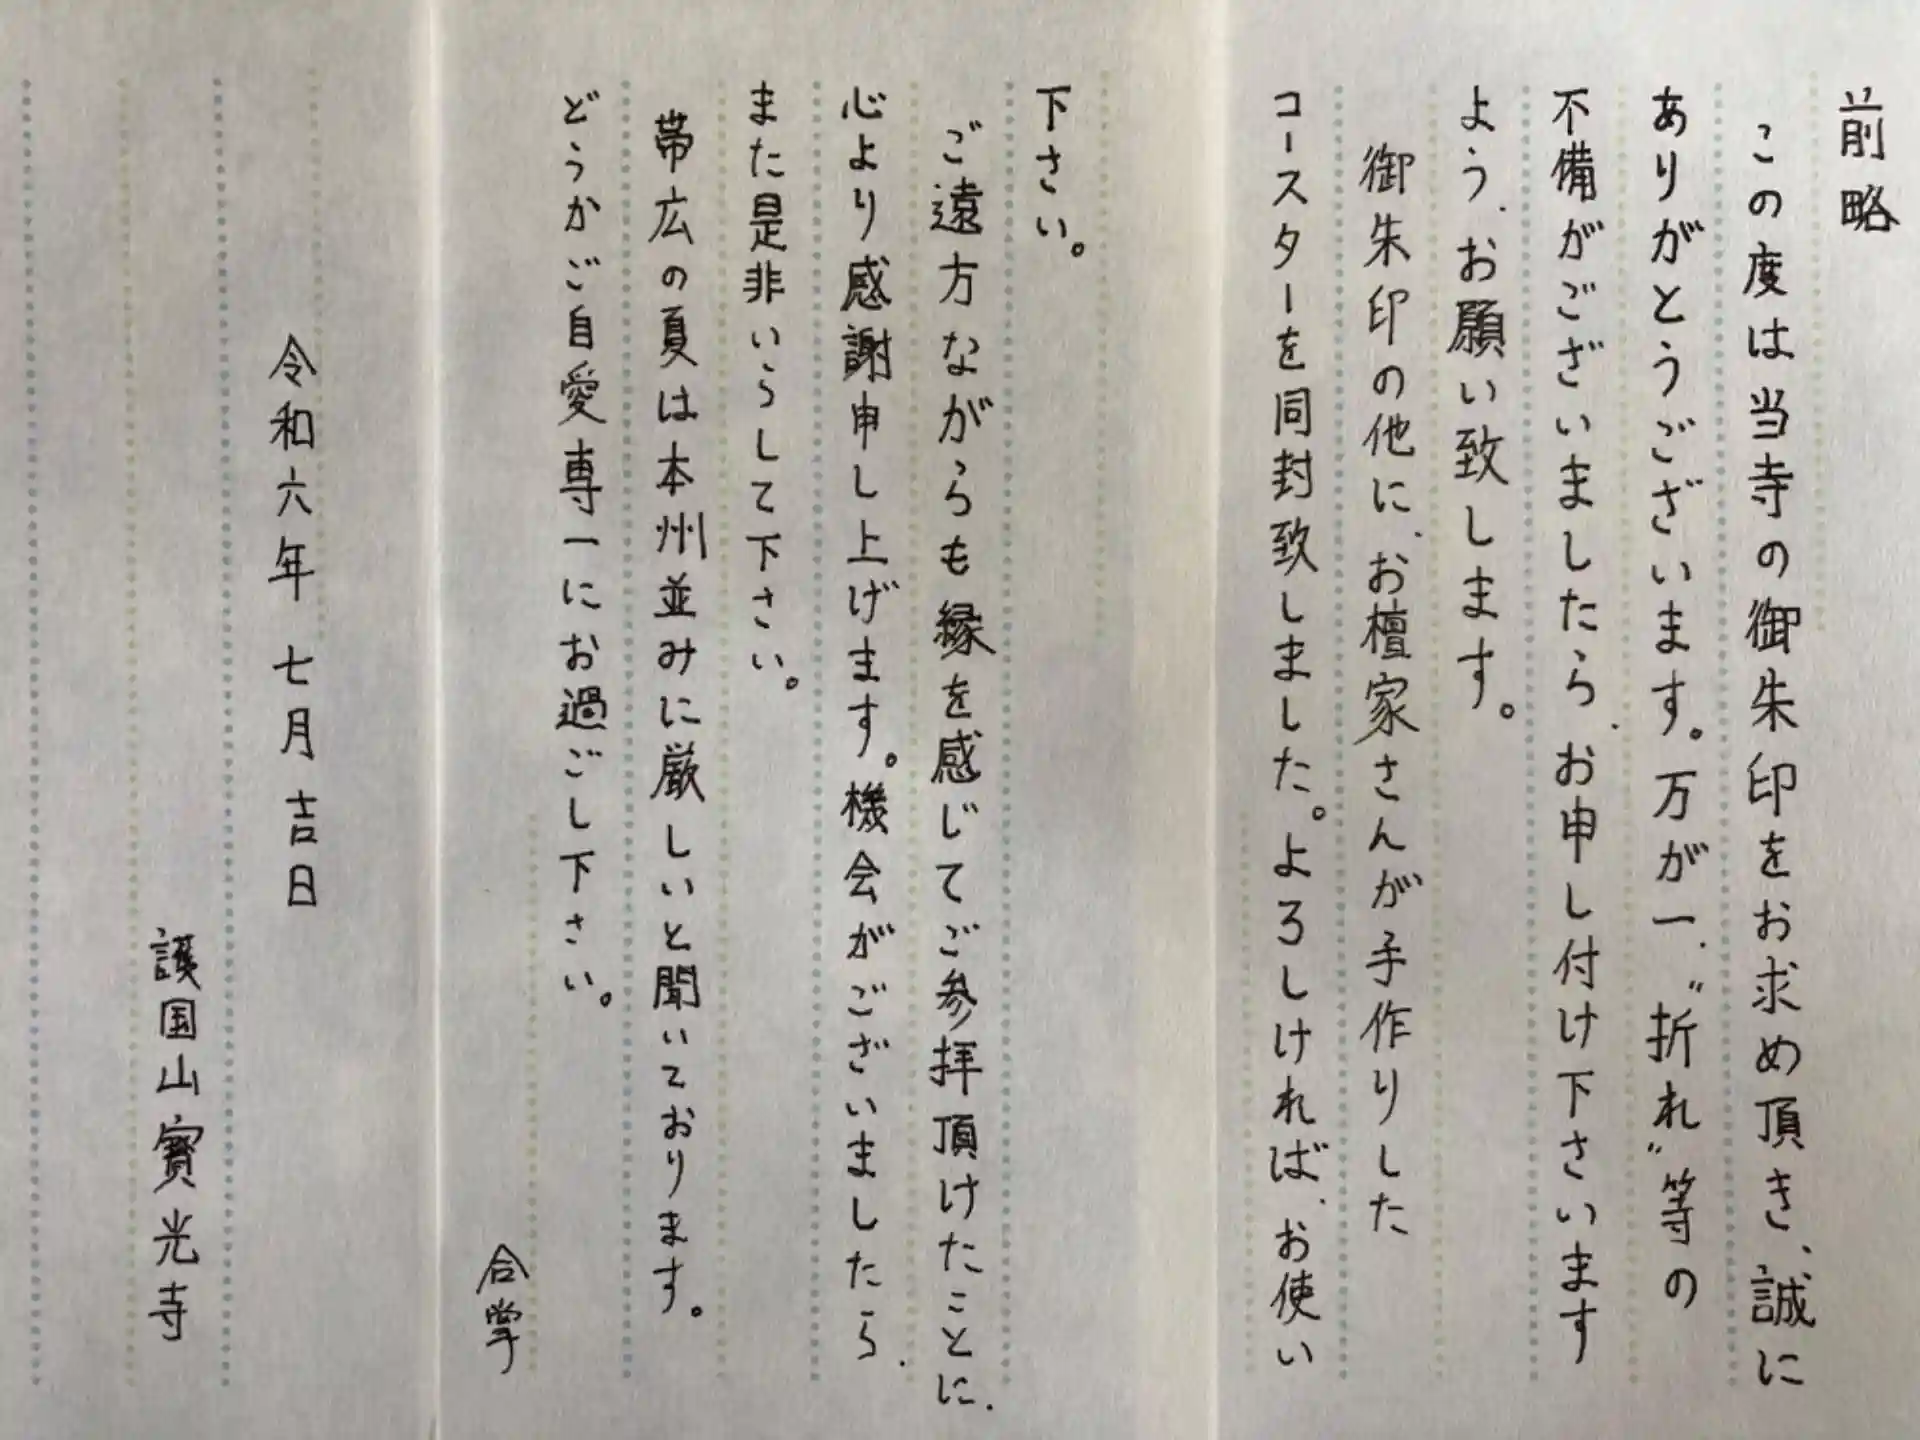 前略
この度は当寺の御朱印をお求め頂き、誠に
ありがとうございます。万が一、〝折れ〟等の
不備がございましたら、お申し付け下さいます
よう、お願い致します。
御朱印の他に、お檀家さんが手作りした
コースターを同封致しました。よろしければ、お使い
下さい。
ご遠方ながらも縁を感じてご参拝頂けたことに、
心より感謝申し上げます。機会がございましたら、
また是非いらして下さい。
帯広の夏は本州並みに厳しいと聞いております。
どうかご自愛専一にお過ごし下さい。
合掌
令和六年 七月 吉日
護国山寳光寺